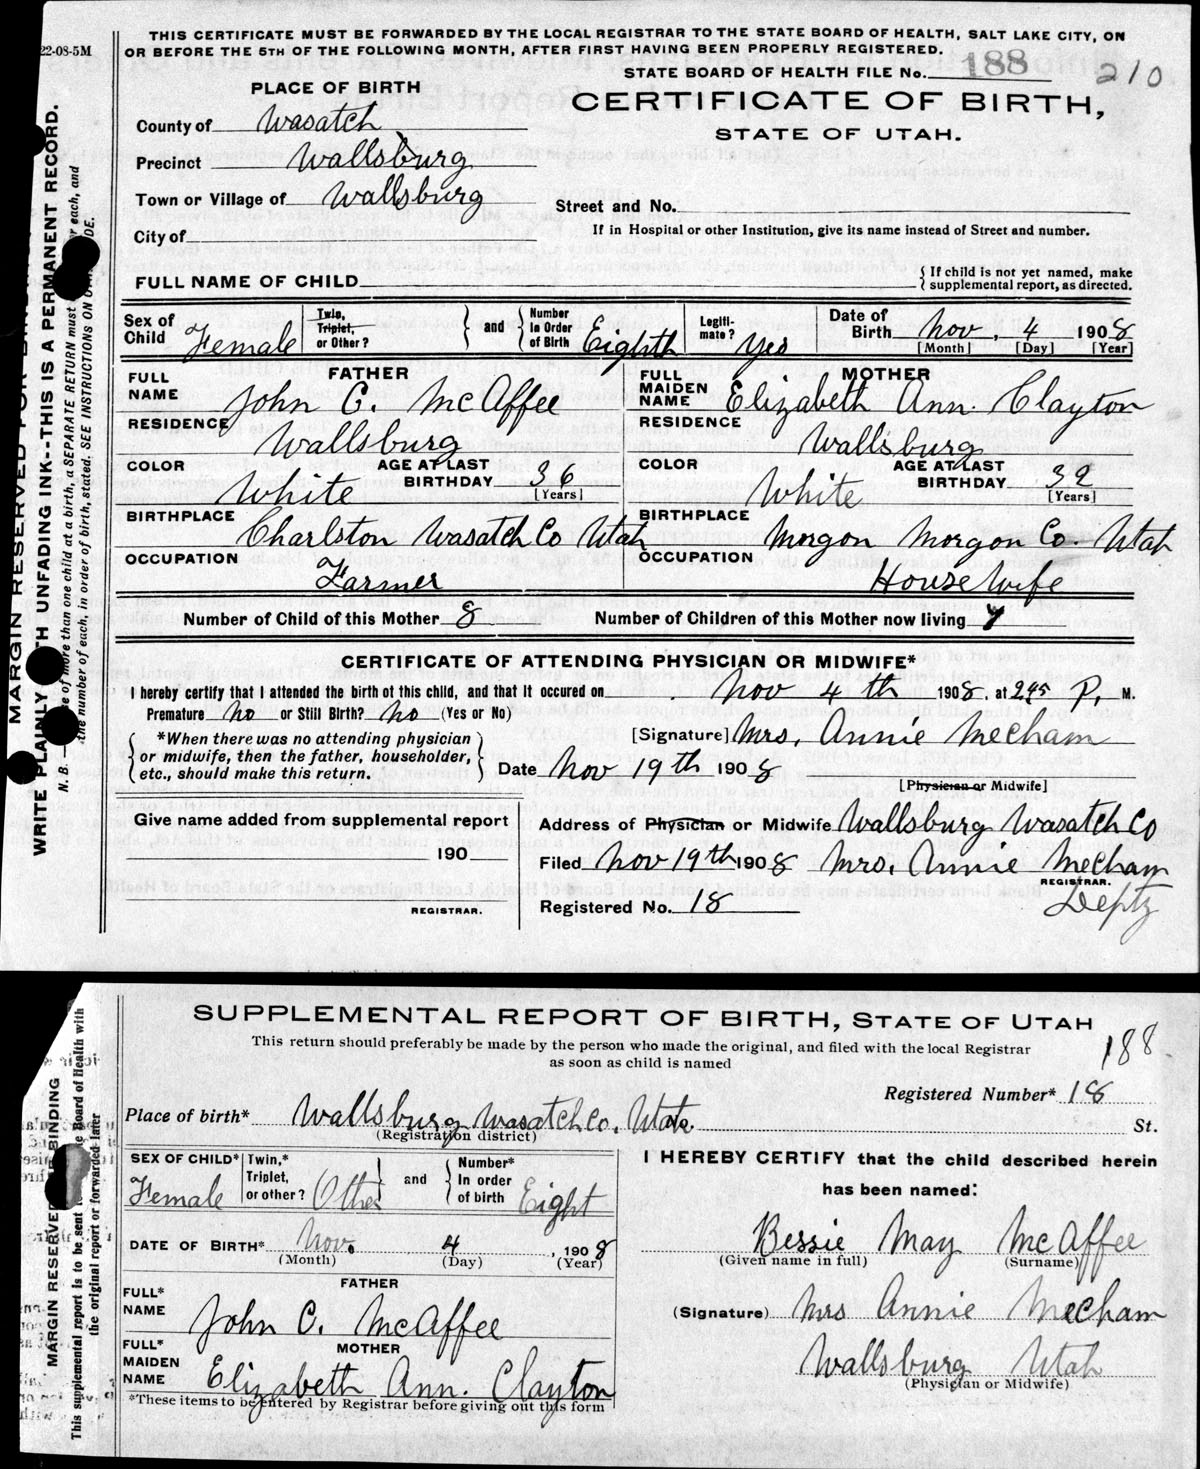 22-08-5M
THIS CERTIFICATE MUST BE FORWARDED BY THE LOCAL REGISTRAR TO THE STATE BOARD OF HEALTH, SALT LAKE CITY, ON
OR BEFORE THE 5TH OF THE FOLLOWING MONTH, AFTER FIRST HAVING BEEN PROPERLY REGISTERED.
STATE BOARD OF HEALTH FILE No. 188 210
PLACE OF BIRTH
CERTIFICATE OF BIRTH,
STATE OF UTAH.
County of Wasatch
Precinct Wallsburg
Town or Village of Wallsburg
Street and No.
City of
If in Hospital or other Institution, give its name instead of Street and number.
FULL NAME OF CHILD { If child is not yet named, make supplemental report, as directed.
Sex of Child Female Twin, Triplet, or Other? } and { Number in Order of Birth Eighth Legiti-mate? Yes Date of Birth Nov. 4 1908
[Month] [Day] [Year]
FATHER
FULL NAME John C. McAffee
RESIDENCE Wallsburg
COLOR White AGE AT LAST BIRTHDAY 36 [Years]
BIRTHPLACE Charlston Wasatch Co Utah
OCCUPATION Farmer
MOTHER
FULL MAIDEN NAME Elizabeth Ann. Clayton
RESIDENCE Wallsburg
COLOR White AGE AT LAST BIRTHDAY 32 [Years]
BIRTHPLACE Morgon Morgon Co. Utah
OCCUPATION House Wife
Number of Child of this Mother 8 Number of Children of this Mother now living 7
CERTIFICATE OF ATTENDING PHYSICIAN OR MIDWIFE*
I hereby certify that I attended the birth of this child, and that it occured on Nov 4th 1908, at 2.45 P. M.
Premature No or Still Birth? No (Yes or No)
{ *When there was no attending physician
or midwife, then the father, householder,
etc., should make this return. }
[Signature] Mrs. Annie Mecham
Date Nov 19th 1908
[Physician or Midwife]
Give name added from supplemental report
190
REGISTRAR.
Address of Physician or Midwife Wallsburg Wasatch Co
Filed Nov 19th 1908 Mrs. Annie Mecham
REGISTRAR.
Depty
Registered No. 18
MARGIN RESERVED FOR
WRITE PLAINLY UNFADING INK--THIS IS A PERMANENT RECORD.
N. B. of more than one child at a birth, a SEPARATE RETURN must each, and
the number of each, in order of birth, stated. SEE INSTRUCTIONS ON
SUPPLEMENTAL REPORT OF BIRTH, STATE OF UTAH
This return should preferably be made by the person who made the original, and filed with the local Registrar
as soon as child is named
188
Registered Number* 18
Place of birth* Wallsburg Wasatch Co. Utah No. St.
(Registration district)
SEX OF CHILD* Female Twin,* Triplet, or other? Other } and { Number* In order of birth Eight
DATE OF BIRTH* Nov. 4, 1908
(Month) (Day) (Year)
FATHER
FULL* NAME John C. McAffee
MOTHER
FULL* MAIDEN NAME Elizabeth Ann. Clayton
*These items to be entered by Registrar before giving out this form
I HEREBY CERTIFY that the child described herein
has been named:
Bessie May McAffee
(Given name in full) (Surname)
(Signature) Mrs Annie Mecham
Wallsburg Utah
(Physician or Midwife)
MARGIN RESERVED BINDING
This supplemental report is to be sent Board of Health with
the original report or forwarded later